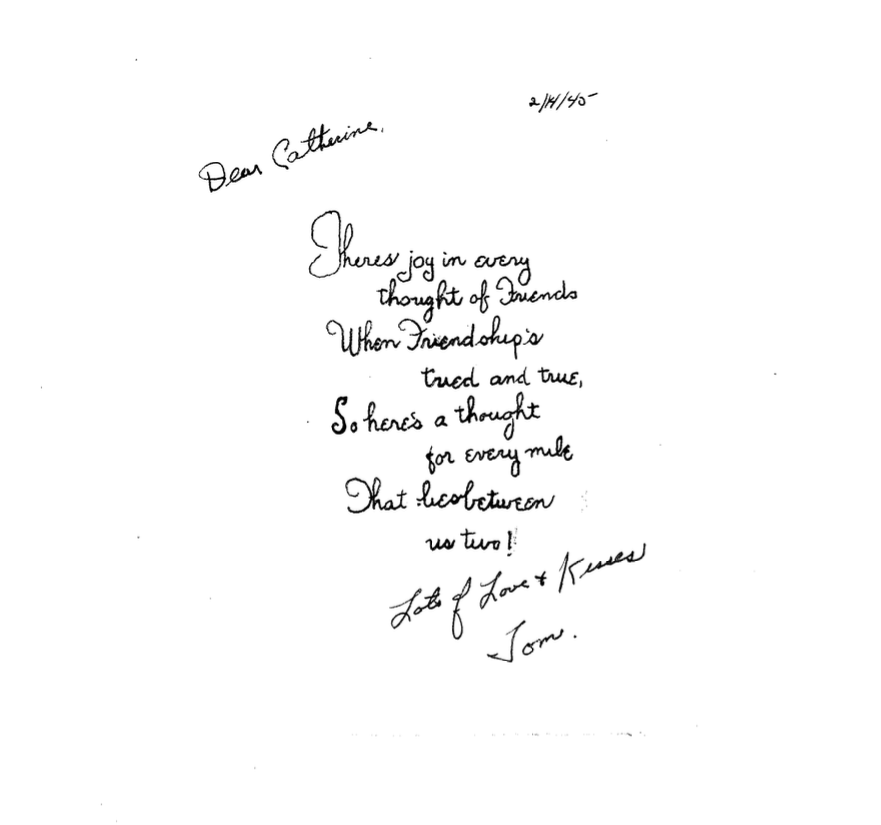 2/14/45
Dear Catherine,
Theres joy in every
thought of Friends
When Friendship's
tried and true,
So here's a thought
for every mile
That lies between
us two!
Lots of Love & Kisses
Tom.